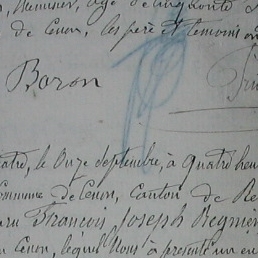 Menuisier, âgé de cinquante
de Cenon, les père et temoins ont
Baron
quatre, le Onze Septembre, à Quatre heu
Commune de Cenon, Canton de
François Joseph Regnier
Cenon, lequel Nous a présenté un en